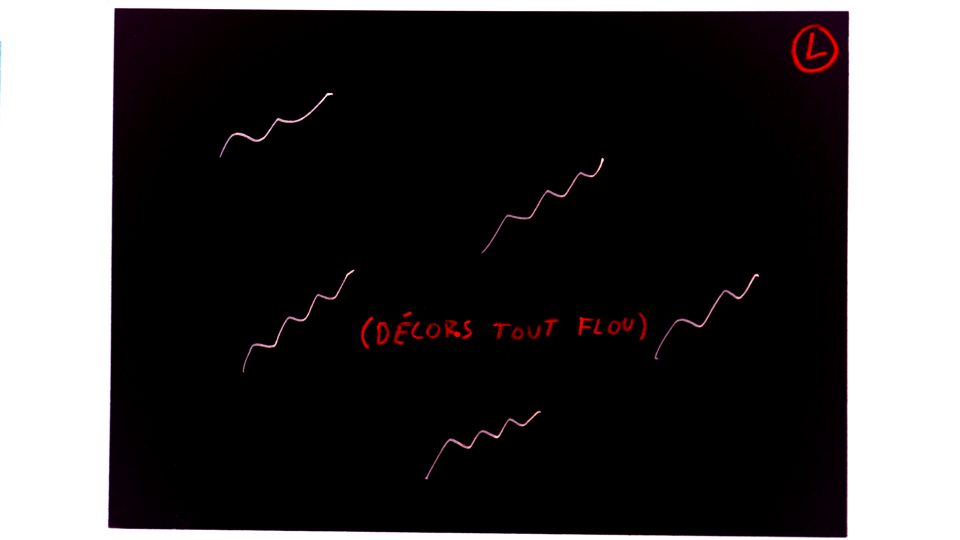 L
(DÉCORS TOUT FLOU)